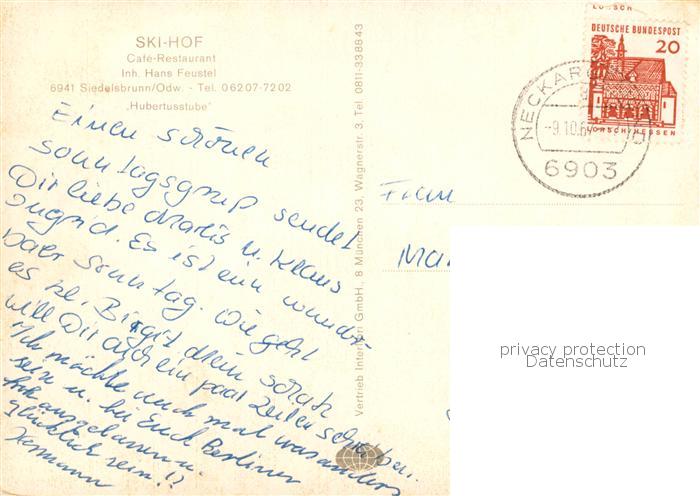 SKI-HOF
Café-Restaurant
Inh. Hans Feustel
6941 Siedelsbrunn/Odw. - Tel. 06207-7202
„Hubertusstube"
Einen schönen
Sonntagsgruß sendet
Dir liebe Marlis u. Klaus
Ingrid. Es ist ein wunder-
barer Sonntag. Wie geht
es Dir. Birgit dein Schatz
will Dir auch ein paar Zeilen schreiben.
Ich möchte auch mal was anders
sein u. bei Euch Berliner
glücklich sein !!
Hermann
Vertrieb Interkort GmbH., 8 München 23, Wagnerstr. 3, Tel. 0811-338843
LORSCH
DEUTSCHE BUNDESPOST
20
LORSCH/HESSEN
NECKAR
-9.10.6
6903
Frau
Ma
privacy protection
Datenschutz